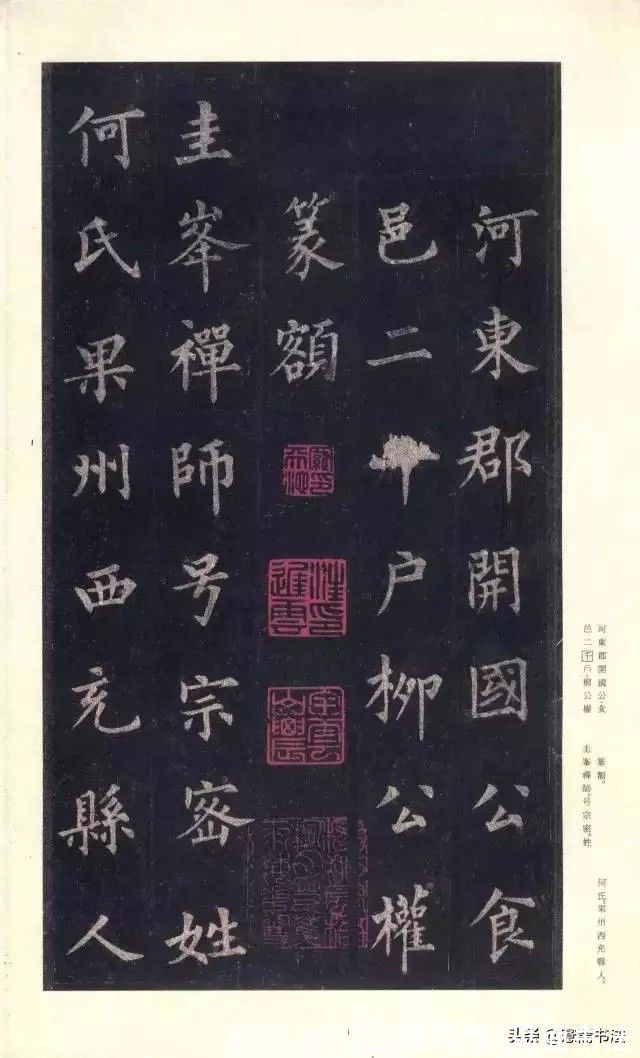 河東郡開國公食
邑二千户柳公權
篆額
圭峯禪師号宗密姓
何氏果州西充縣人
河東郡開國公食
邑二千户,柳公權
篆額。
圭峯禪師,号宗密,姓
何氏,果州西充縣人。
头条